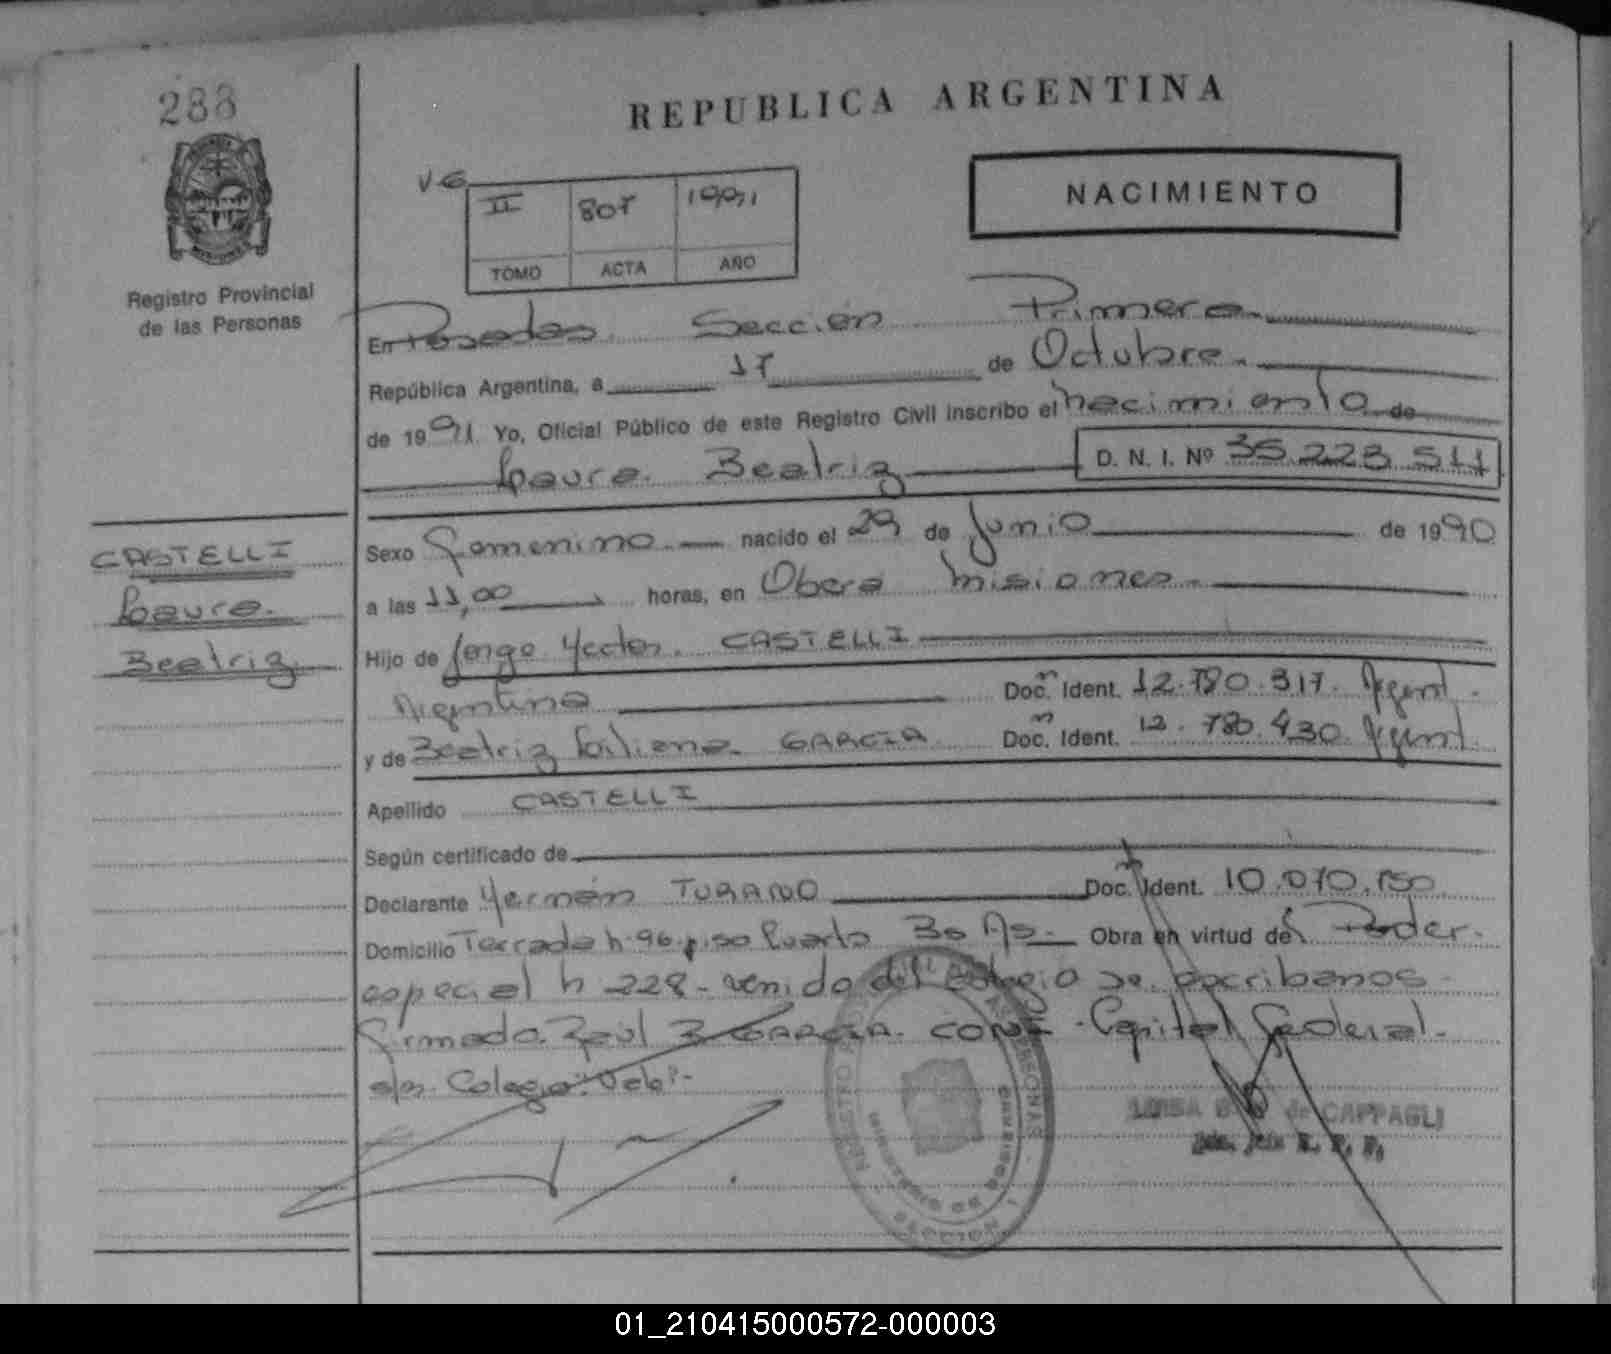 288
REPUBLICA ARGENTINA
NACIMIENTO
II 807 1991
TOMO ACTA AÑO
Registro Provincial
de las Personas
En Posadas Sección Primera
República Argentina, a 17 de Octubre
de 1991 Yo, Oficial Público de este Registro Civil inscribo el nacimiento de
Laura Beatriz D. N. I. Nº 35.223.511
CASTELLI
Laura
Beatriz
Sexo Femenino nacido el 29 de Junio de 1990
a las 11,00 horas, en Obera Misiones
Hijo de Jorge Hector CASTELLI
Argentina Doc. Ident. 12.780.317 Argent.
y de Beatriz Liliana GARCIA Doc. Ident. 12.780.430 Argent.
Apellido CASTELLI
Según certificado de
Declarante Hernán TURANO Doc. Ident. 10.070.150
Domicilio Terrada n 96 piso Bs As. Obra en virtud de Poder
especial n 228 - venido del colegio de escribanos
firmado Raúl R GARCIA Capital Federal.
s/r Colegio
de CAPPAGLI
SECCION 1
01_210415000572-000003